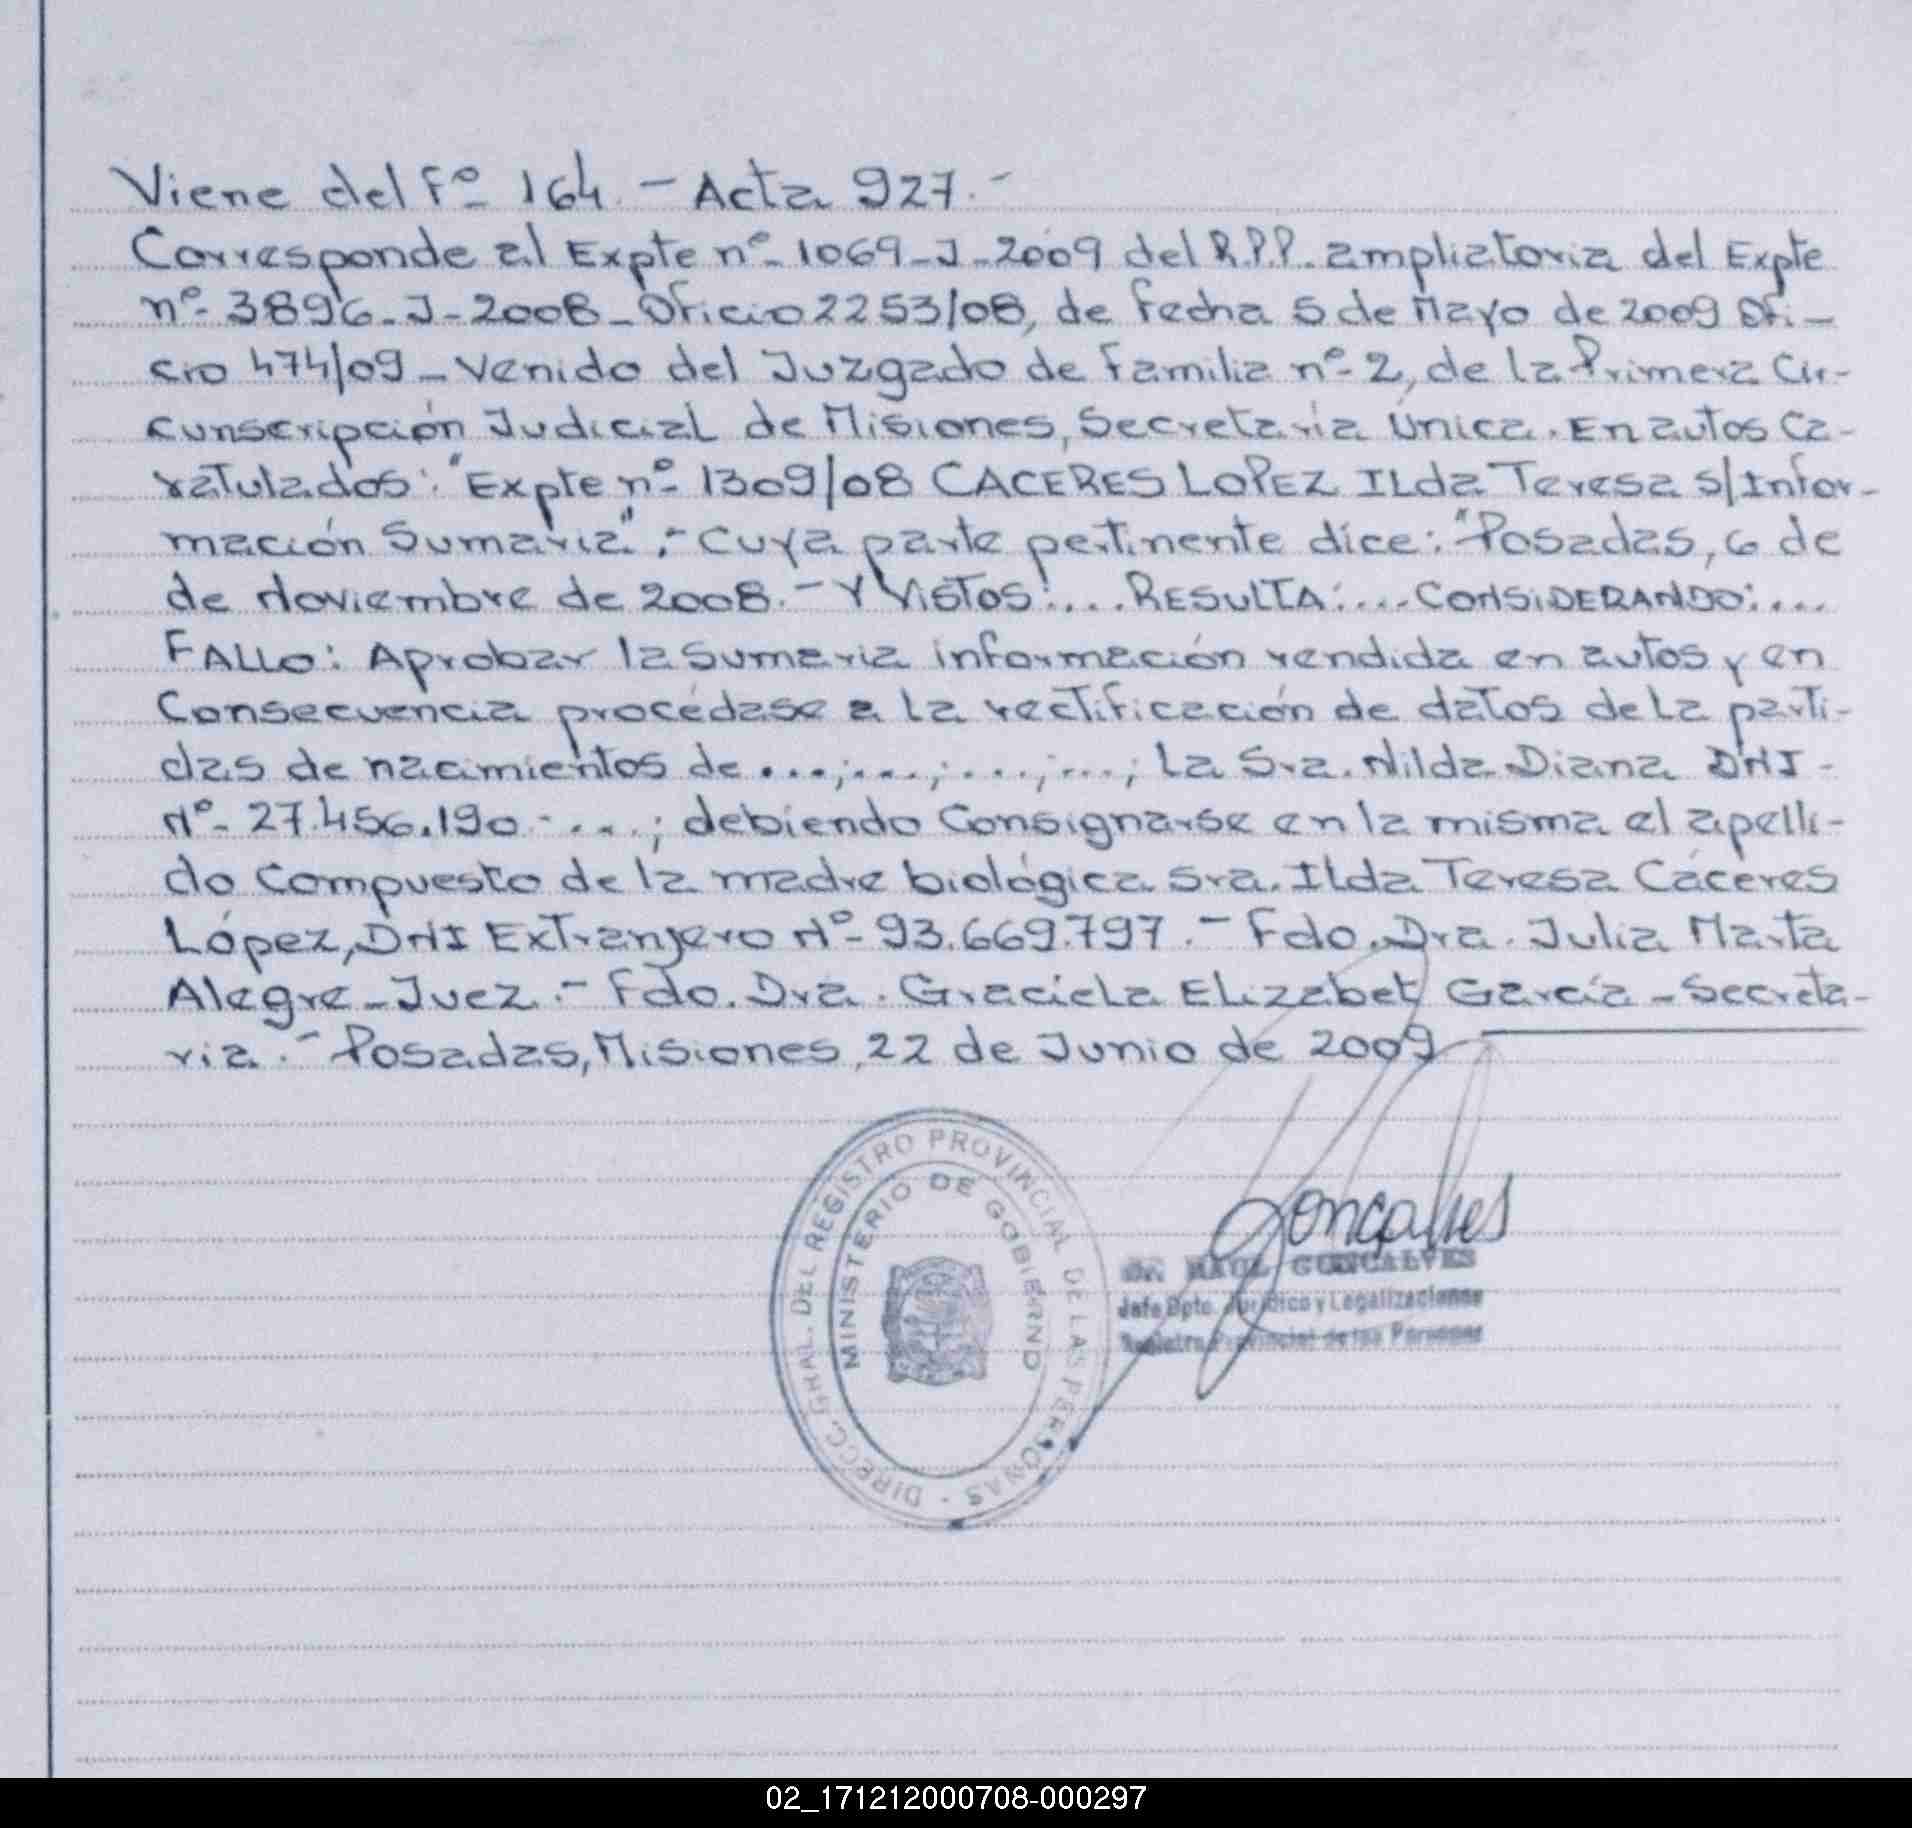 Viene del Fº 164. - Acta 927.-
Corresponde al Expte nº- 1069-J-2009 del R.P.P. ampliatoria del Expte
nº- 3896-J-2008-Oficio 2253/08, de fecha 5 de Mayo de 2009 Ofi-
cio 474/09 - Venido del Juzgado de Familia nº-2, de la Primera Cir-
cunscripción Judicial de Misiones, Secretaria Única. En autos Ca-
ratulados: "Expte nº- 1309/08 CACERES LOPEZ ILda Teresa S/Infor-
mación Sumaria".- Cuya parte pertinente dice: "Posadas, 6 de
de Noviembre de 2008.- Y VISTOS:.... RESULTA:.... CONSIDERANDO:....
FALLO: Aprobar la Sumaria información rendida en autos y en
Consecuencia procédase a la rectificación de datos de La parti-
das de nacimientos de ...;....;....;....; La Sra. Nilda Diana DNI-
Nº- 27.456.190 -....; debiendo Consignarse en la misma el apelli-
do Compuesto de la madre biológica Sra. ILda Teresa Cáceres
López, DNI Extranjero Nº- 93.669.797.- Fdo. Dra. Julia Marta
Alegre - Juez.- Fdo. Dra. Graciela Elizabet García - Secreta-
ria.- Posadas, Misiones, 22 de Junio de 2009
DIRECC. GRAL. DEL REGISTRO PROVINCIAL DE LAS PERSONAS -
MINISTERIO DE GOBIERNO
Goncalves
Dr. RAUL GONCALVES
Jefe Dpto. Jurídico y Legalizaciones
Registro Provincial de las Personas
02_171212000708-000297